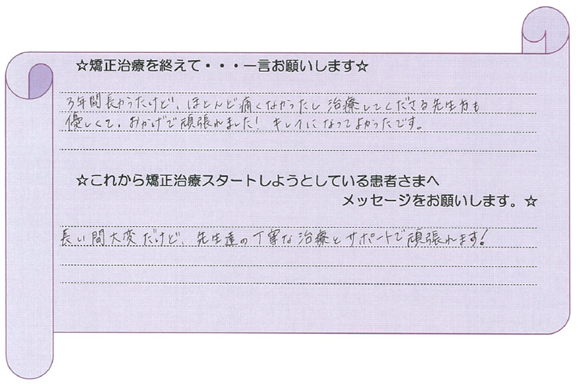 ☆矯正治療を終えて・・・一言お願いします☆
3年間長かったけど、ほとんど痛くなかったし治療してくださる先生方も
優しくて、おかげで頑張れました！キレイになってよかったです。
☆これから矯正治療スタートしようとしている患者さまへ
メッセージをお願いします。☆
長い間大変だけど、先生達の丁寧な治療とサポートで頑張れます！